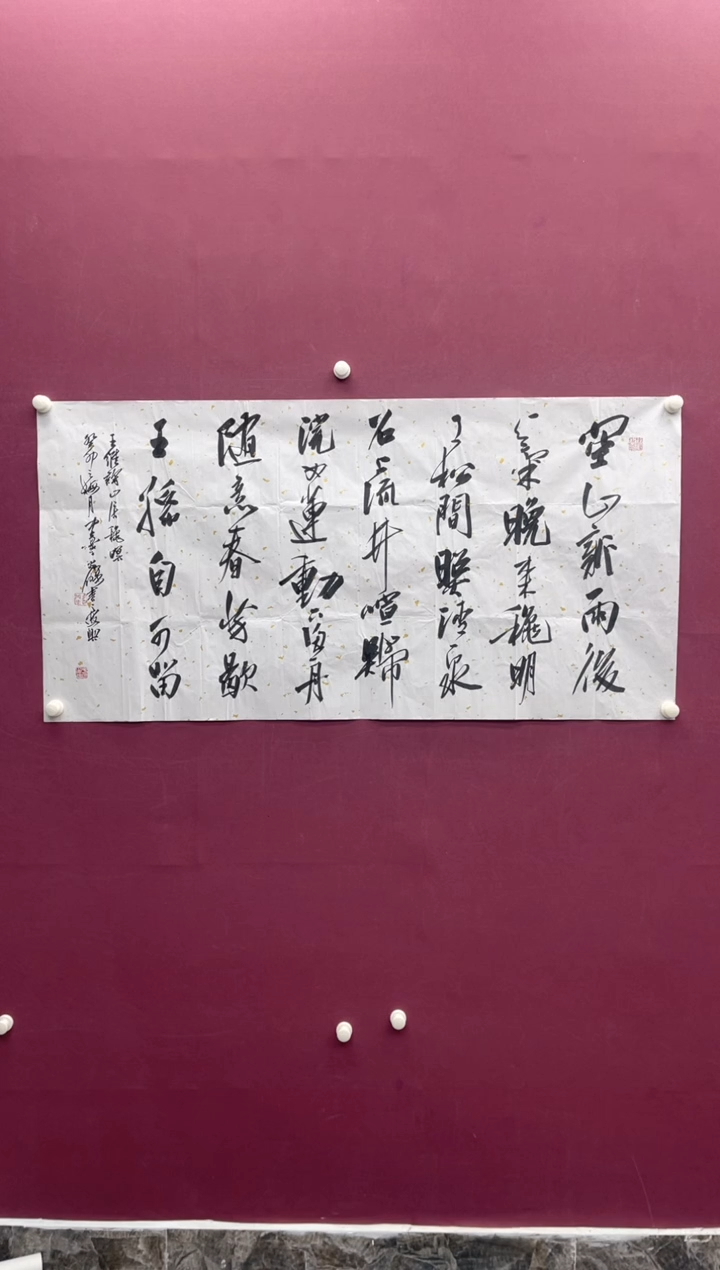 空山新雨後
天氣晚来穐明
月松間照清泉
石上流竹喧歸
浣女蓮動下漁舟
随意春芳歇
王孫自可留
王維詩山居穐暝
癸卯